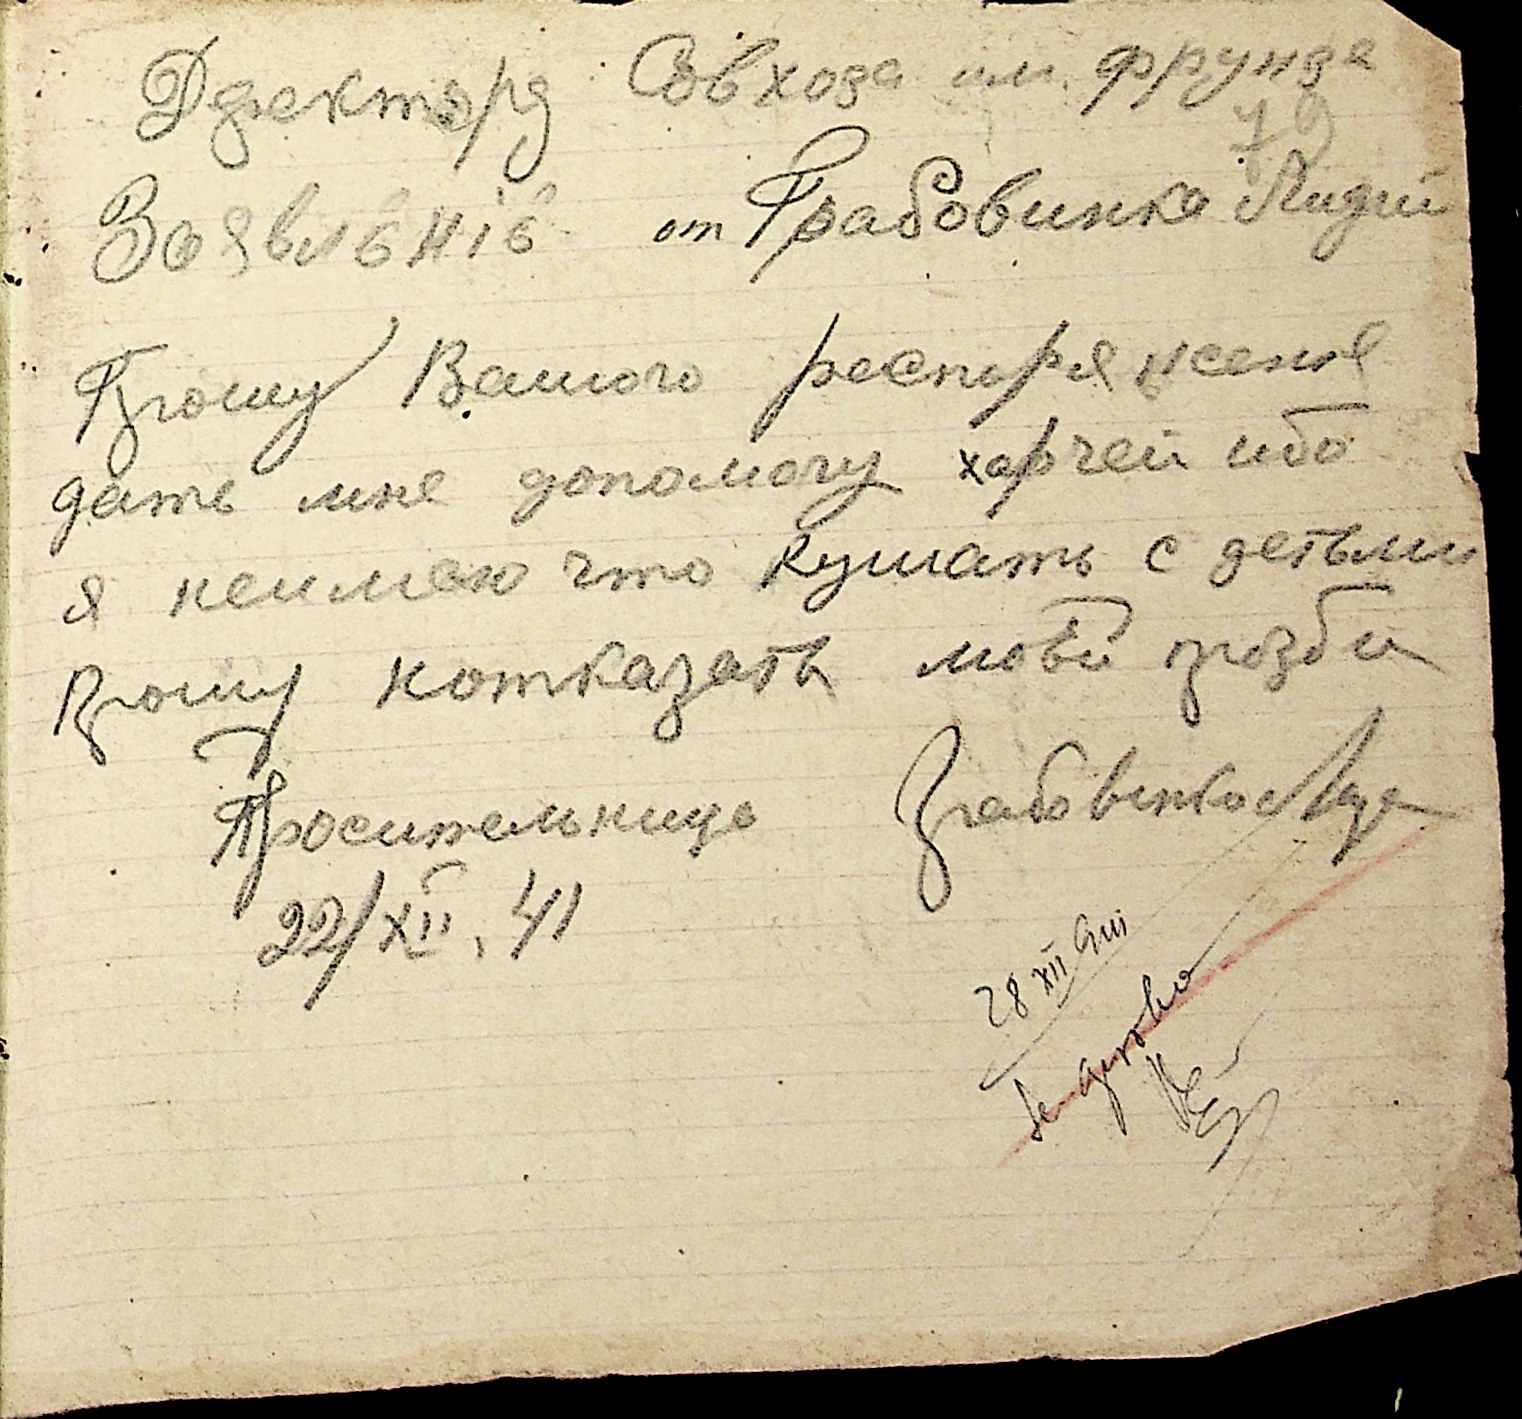 Дректору Совхоза им. Фрунзе
79
Заявлєніє от Грабовинка Лидии
Прошу Вашого распоряженя
дать мне допомогу харчей ибо
я неимею что кушать с детьми
Прошу неотказать моєй прозби
Просительница Грабовинка Лида
22/XII. 41
28 XII 41